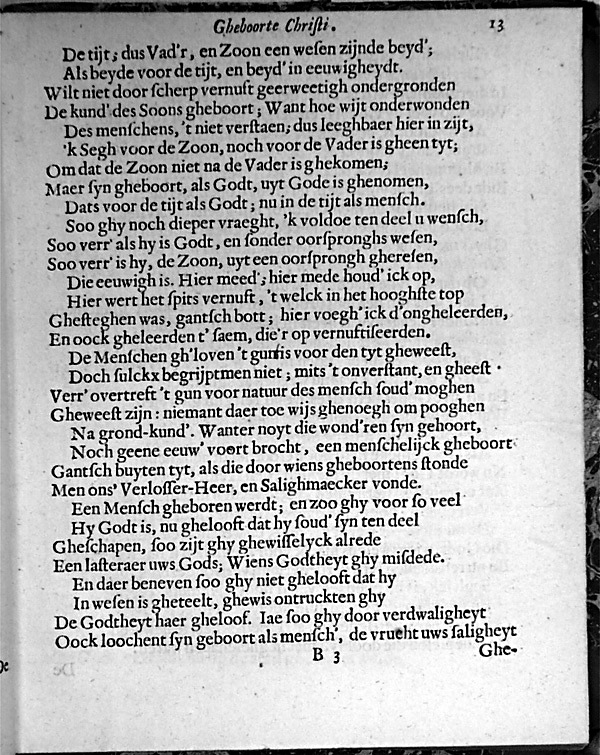 Gheboorte Chriſti. 13
De tijt; dus Vad'r, en Zoon een weſen zijnde beyd';
Als beyde voor de tijt, en beyd' in eeuwigheydt.
Wilt niet door ſcherp vernuft geerweetigh ondergronden
De kund' des Soons gheboort; Want hoe wijt onderwonden
Des menſchens, 't niet verſtaen; dus leeghbaer hier in zijt,
'k Segh voor de Zoon, noch voor de Vader is gheen tyt;
Om dat de Zoon niet na de Vader is ghekomen;
Maer ſyn gheboort, als Godt, uyt Gode is ghenomen,
Dats voor de tijt als Godt; nu in de tijt als menſch.
Soo ghy noch dieper vraeght, 'k voldoe ten deel u wenſch,
Soo verr' als hy is Godt, en ſonder oorſpronghs weſen,
Soo verr' is hy, de Zoon, uyt een oorſprongh ghereſen,
Die eeuwigh is. Hier meed'; hier mede houd' ick op,
Hier wert het ſpits vernuft, 't welck in het hooghſte top
Gheſteghen was, gantſch bott; hier voegh' ick d'ongheleerden,
En oock gheleerden t' ſaem, die'r op vernuftiſeerden.
De Menſchen gh'loven 't gunſis voor den tyt gheweeſt,
Doch ſulckx begrijptmen niet; mits 't onverſtant, en gheeſt
Verr' overtreft 't gun voor natuur des menſch ſoud' moghen
Gheweeſt zijn: niemant daer toe wijs ghenoegh om pooghen
Na grond-kund'. Wanter noyt die wond'ren ſyn gehoort,
Noch geene eeuw' voort brocht, een menſchelijck gheboort
Gantſch buyten tyt, als die door wiens gheboortens ſtonde
Men ons' Verloſſer-Heer, en Salighmaecker vonde.
Een Menſch gheboren werdt; en zoo ghy voor ſo veel
Hy Godt is, nu ghelooft dat hy ſoud' ſyn ten deel
Gheſchapen, ſoo zijt ghy ghewiſſelyck alrede
Een laſteraer uws Gods; Wiens Godtheyt ghy miſdede.
En daer beneven ſoo ghy niet ghelooft dat hy
In weſen is gheteelt, ghewis ontruckten ghy
De Godtheyt haer gheloof. Iae ſoo ghy door verdwaligheyt
Oock loochent ſyn geboort als menſch', de vrucht uws ſaligheyt
B 3 Ghe-